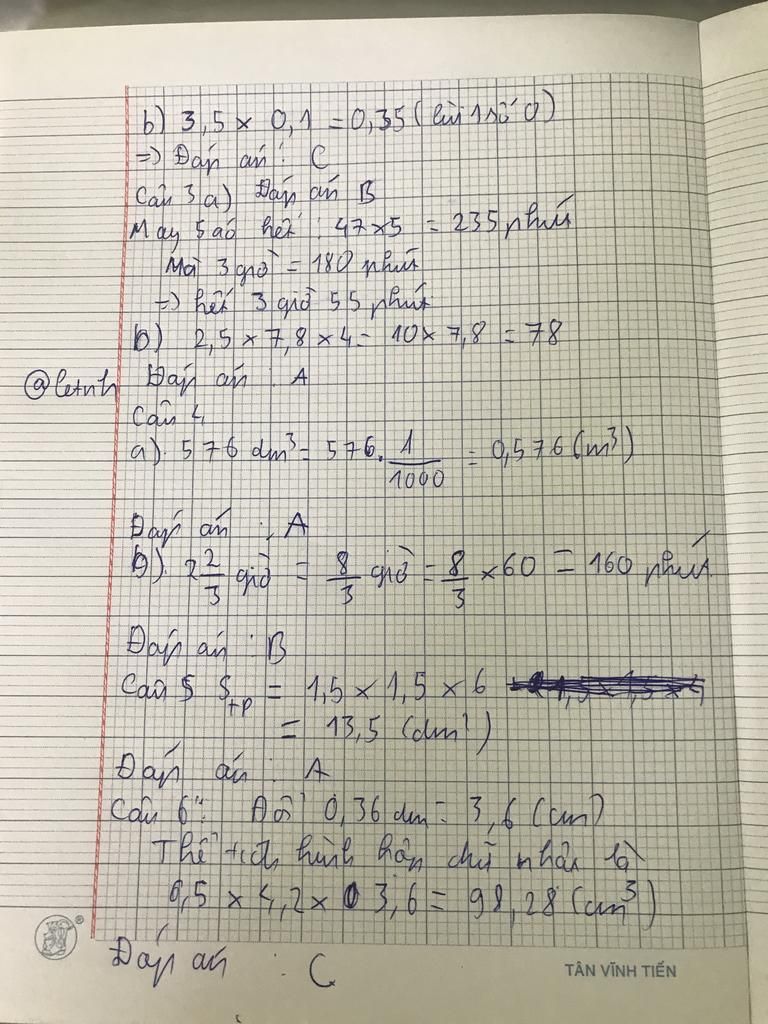 b) 3,5 × 0,1 = 0,35 (lùi 1 số 0)
=> Đáp án : C
Câu 3 a) Đáp án B
May 5 áo hết : 47×5 = 235 phút
Mà 3 giờ = 180 phút
=> hết 3 giờ 55 phút
b) 2,5 × 7,8 × 4 = 10 × 7,8 = 78
@letnh Đáp án : A
Câu 4
a). 576 dm³ = 576. 1/1000 = 0,576 (m³)
Đáp án : A
b). 2 2/3 giờ = 8/3 giờ = 8/3 × 60 = 160 phút.
Đáp án : B
Câu 5 Stp = 1,5 × 1,5 × 6
= 13,5 (dm²)
Đáp án : A
Câu 6 : Đổi 0,36 dm = 3,6 (cm)
Thể tích hình hộp chữ nhật là
6,5 × 4,2 × 3,6 = 98,28 (cm³)
Đáp án : C
TÂN VĨNH TIẾN